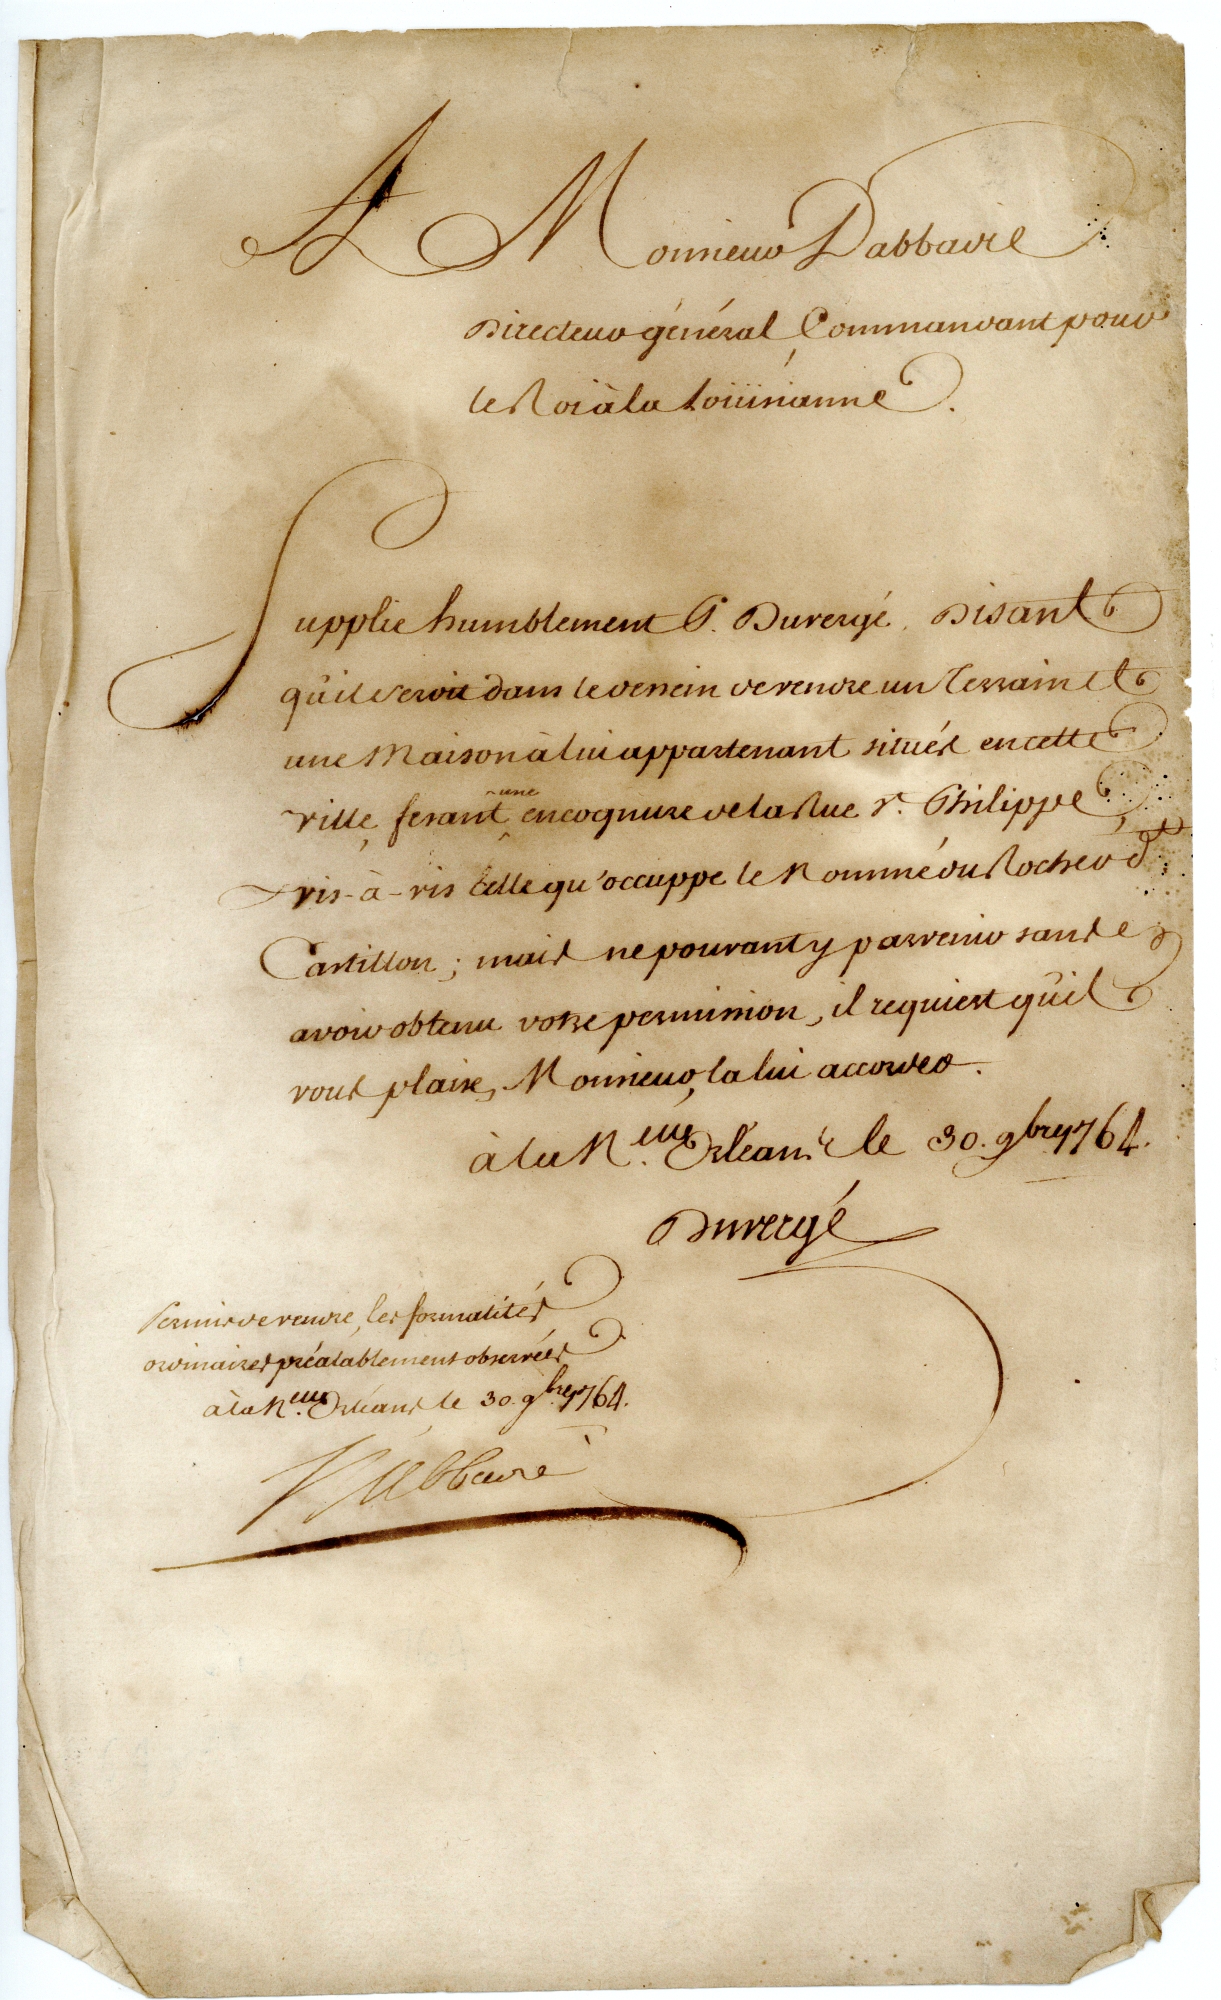 A Monsieur Dabbadie
Directeur général Commandant pour
le Roi à la Loüisianne.
Supplie humblement P. Duvergé, Disant
qu'il seroit dans le dessein de vendre un Terrain et
une Maison à lui appartenant situés en cette
ville, fesant une encognure de la Rue St. Philippe
vis-à-vis celle qu'occuppe le Nommé du Rocher dt.
Castillon; mais ne pouvant y parvenir sans
avoir obtenu votre permission, il requiert qu'il
vous plaise, Monsieur, la lui accorder.
à la N.elle Orléans le 30. 9bre 1764.
Duvergé
Permis de vendre, les formalités
ordinaires préalablement observées
à la N.elle Orléans le 30. 9bre 1764.
Dabbadie